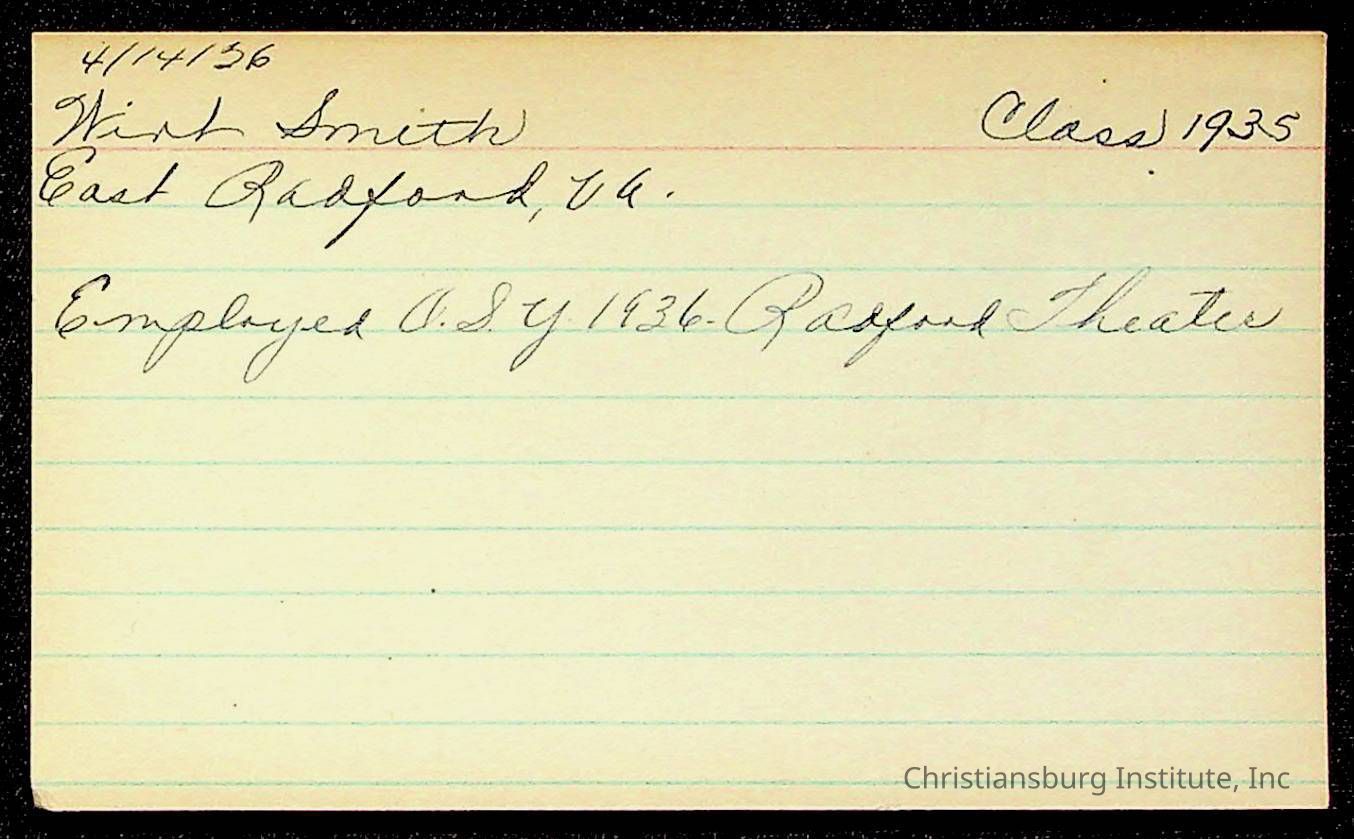 4/14/36
Wirt Smith Class 1935
East Radford, Va.
Employed O.S.Y. 1936- Radford Theater
Christiansburg Institute, Inc